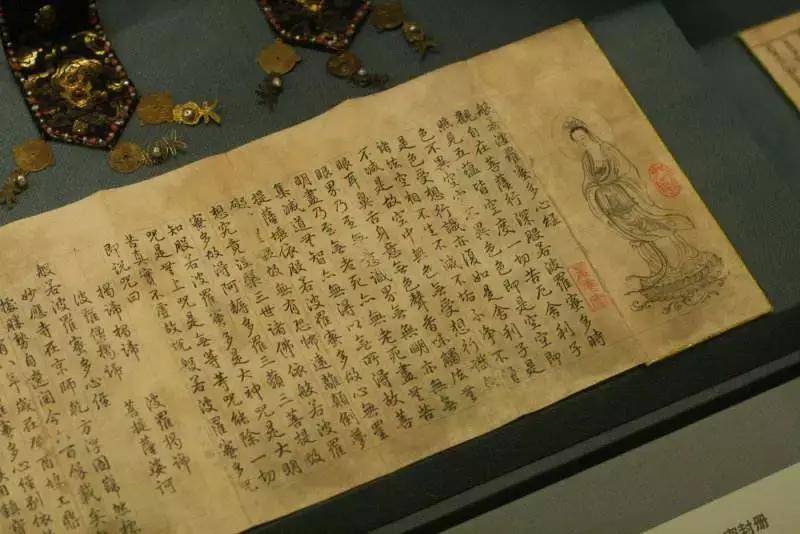 般若波羅蜜多心經
觀自在菩薩行深般若波羅蜜多時
照見五蘊皆空度一切苦厄舍利子
色不異空空不異色色即是空空即
是色受想行識亦復如是舍利子是
諸法空相不生不滅不垢不淨不
不減是故空中無色無受想行識無
眼耳鼻舌身意無色聲香味觸法無
眼界乃至無意識界無無明亦無無
明盡乃至無老死亦無老死盡無苦
集滅道無智亦無得以無所得故菩
提薩埵依般若波羅蜜多故心無罣
礙無罣礙故無有恐怖遠離顛倒夢
想究竟涅槃三世諸佛依般若波羅
蜜多故得阿耨多羅三藐三菩提故
知般若波羅蜜多是大神咒是大明
咒是無上咒是無等等咒能除一切
苦真實不虛故說般若波羅蜜多咒
即說咒曰
揭諦揭諦 波羅揭諦
波羅僧揭諦 菩提薩婆訶
般若波羅蜜多心經
妙應寺在京師乾方浮圖巋然標
勝勢自遼迄今六百餘載矣
年歲在癸酉
蜜多心經
封册